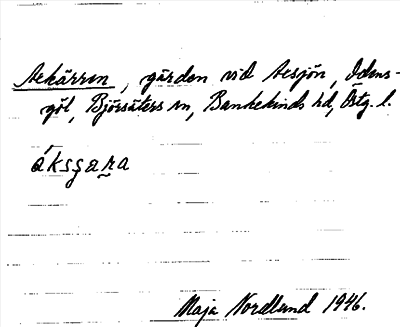 Aekärren, gärden vid Aesjön, Odens-
göl, Björsäters sn, Bankekinds hd, Östg. l.
Maja Nordlund 1946.